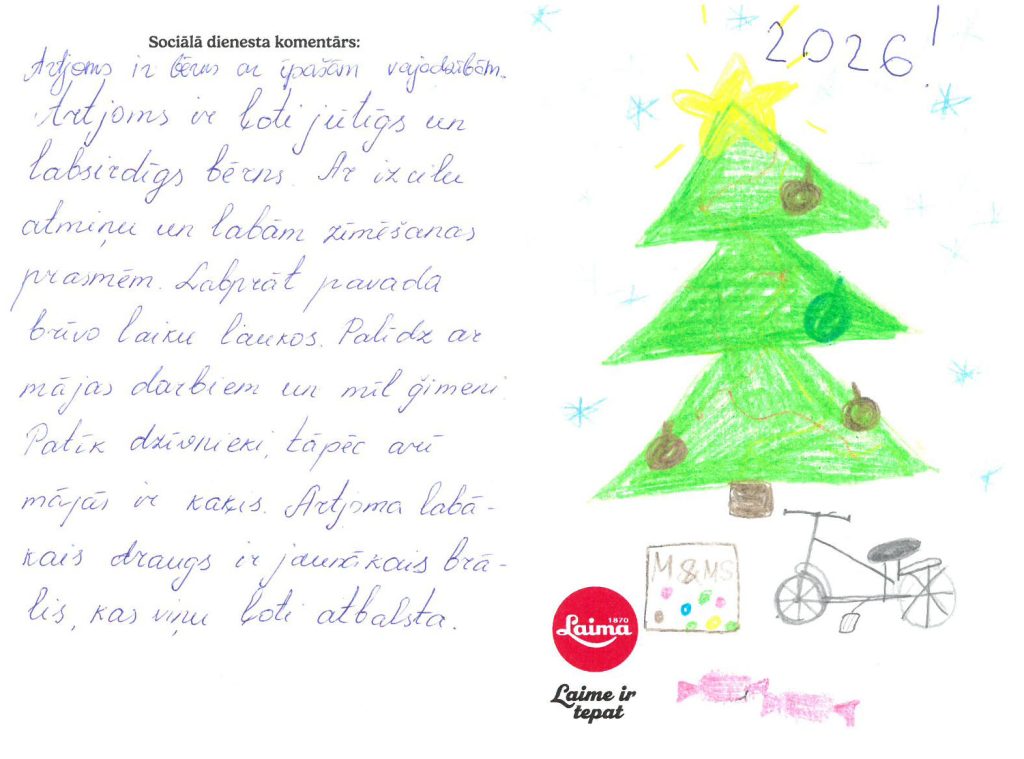 Sociālā dienesta komentārs:
Artjoms ir bērns ar īpašām vajadzībām.
Artjoms ir ļoti jūtīgs un
labsirdīgs bērns. Ar izcilu
atmiņu un labām zīmēšanas
prasmēm. Labprāt pavada
brīvo laiku laukos. Palīdz ar
mājas darbiem un mīl ģimeni.
Patīk dzīvnieki, tāpēc arī
mājās ir kaķis. Artjoma labā-
kais draugs ir jaunākais brā-
lis, kas viņu ļoti atbalsta.
2026!
M&MS
1870
Laima
Laime ir
tepat